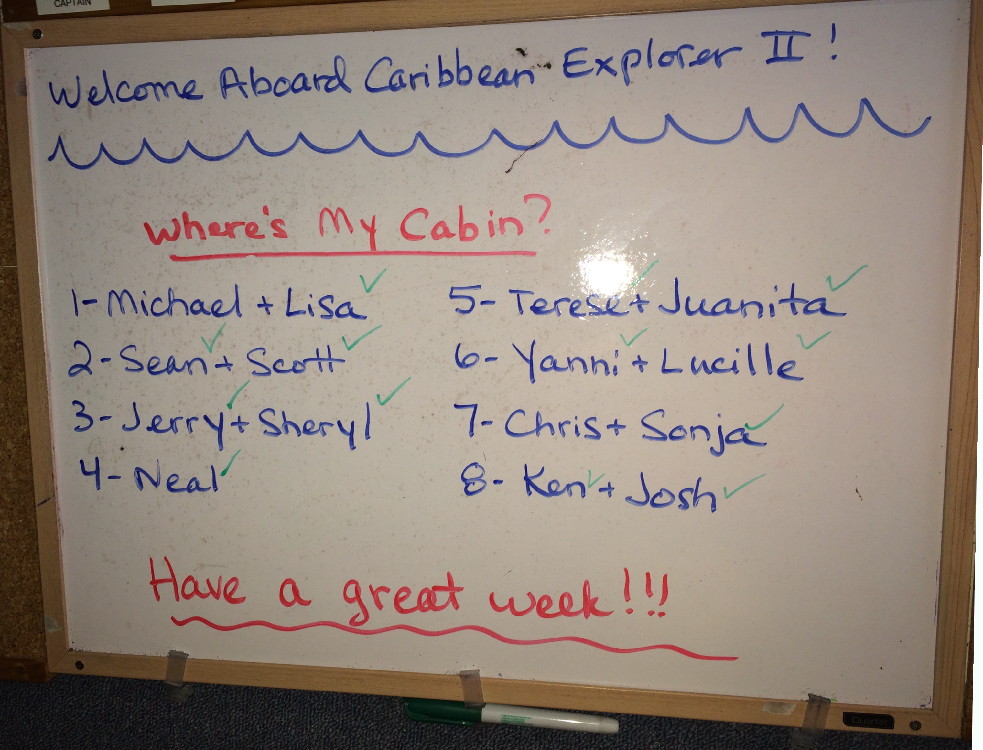 CAPTAIN
Welcome Aboard Caribbean Explorer II!
Where's My Cabin?
1- Michael + Lisa
2- Sean + Scott
3- Jerry + Sheryl
4- Neal
5- Terese + Juanita
6- Yanni + Lucille
7- Chris + Sonja
8- Ken + Josh
Have a great week!!!
Quartet